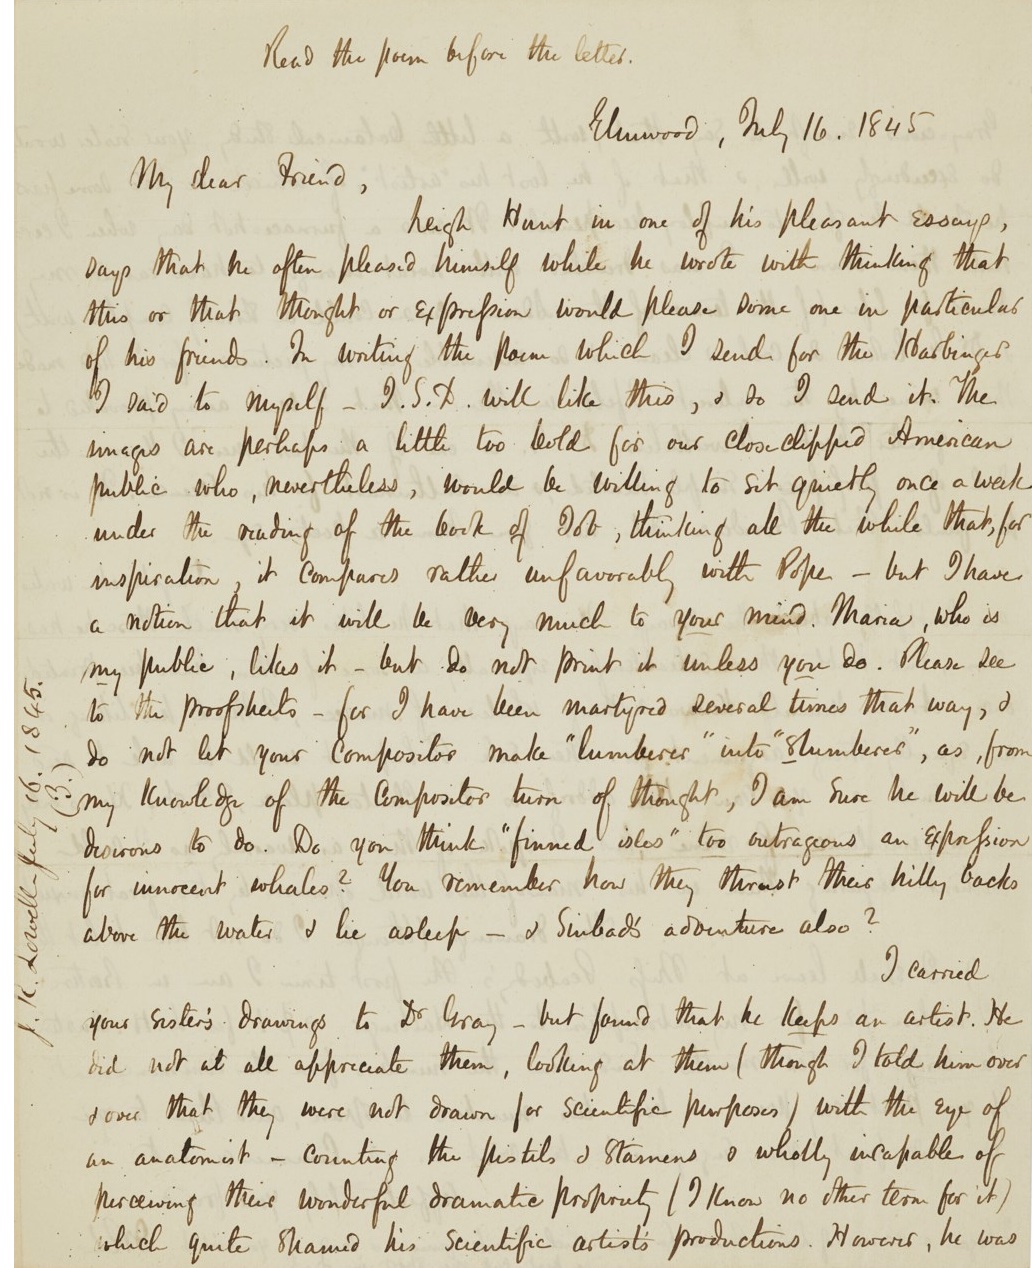 Read the poem before the letter.
Elmwood, July 16. 1845
My dear Friend,
Leigh Hunt in one of his pleasant essays,
says that he often pleased himself while he wrote with thinking that
this or that thought or expression would please some one in particular
of his friends. In writing the poem which I send for the Harbinger
I said to myself – J.S.D. will like this, & so I send it. The
images are perhaps a little too bold for our closeclipped American
public who, nevertheless, would be willing to sit quietly once a week
under the reading of the book of Job, thinking all the while that, for
inspiration, it compares rather unfavorably with Pope – but I have
a notion that it will be very much to your mind. Maria, who is
my public, likes it – but do not print it unless you do. Please see
to the proofsheets – for I have been martyred several times that way, &
do not let your compositor make "lumberer" into "slumberer", as, from
my knowledge of the compositor turn of thought, I am sure he will be
desirous to do. Do you think "finned isles" too outrageous an expression
for innocent whales? You remember how they thrust their hilly backs
above the water & lie asleep – & Sinbad's adventure also?
I carried
your sister's drawings to Dr Gray – but found that he keeps an artist. He
did not at all appreciate them, looking at them (though I told him over
& over that they were not drawn for scientific purposes) with the eye of
an anatomist – counting the pistils & stamens & wholly incapable of
perceiving their wonderful dramatic propriety (I know no other term for it)
which quite shamed his scientific artist's productions. However, he was
J. R. Lowell July 16. 1845.
(3.)